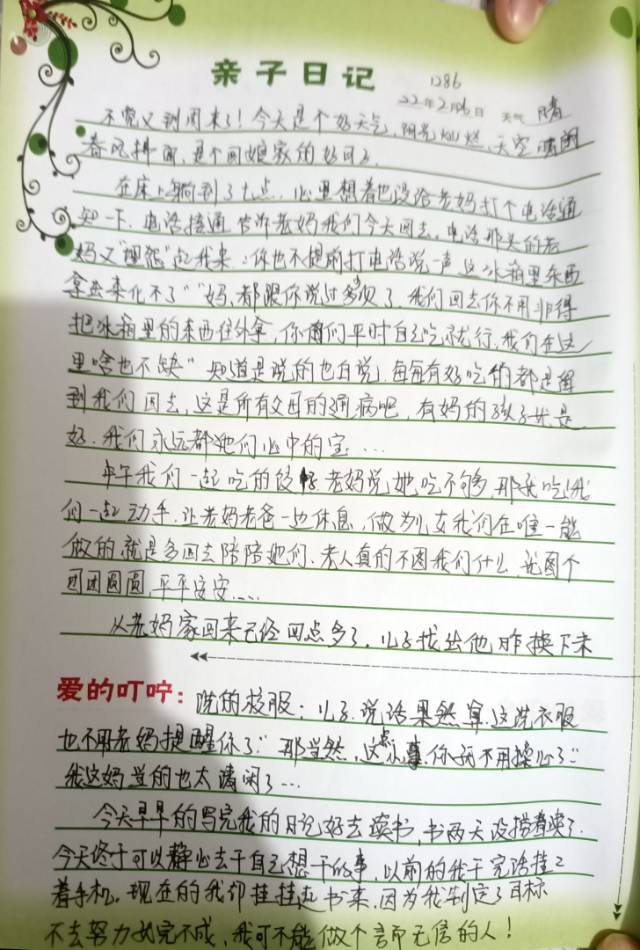 亲子日记
1286
22年2月6日 天气 晴
不觉又到周末了！今天是个好天气，阳光灿烂，天空晴朗
春风拂面，是个回娘家的好日子。
在床上躺到了七点，心里想着也没给老妈打个电话通
知一下，电话接通告诉老妈我们今天回去，电话那头的老
妈又"埋怨"起我来：你也不提前打电话说一声，这冰箱里东西
拿出来化不了""妈，都跟你说过多次了，我们回去你不用非得
把冰箱里的东西往外拿，你俩们平时自己吃就行，我们在这
里啥也不缺"知道是说的也白说，每每有好吃的都是留
到我们回去，这是所有父母的通病吧，有妈的孩子才是
好，我们永远都她们心中的宝…
中午我们一起吃的饺子老妈说她吃不够，那我吃，我
们一起动手，让老妈老爸一边休息，做为儿女我们在唯一能
做的就是多回去陪陪她们，老人真的不图我们什么，就图个
团团圆圆，平平安安……
从老妈家回来已经四点多了，儿子找出他昨换下来
爱的叮咛：洗的校服，儿子，说话果然算，这洗衣服
也不用老妈提醒你了"那当然，这点小事，你就不用操心了"
我这妈当的也太清闲了…
今天早早的写完我的日记好去读书，书两天没捞着读了，
今天终于可以静心去干自己想干的事，以前的我干完活挂
着手机，现在的我却挂挂起书来，因为我制定了目标
不去努力就完不成，我可不能做个言而无信的人！